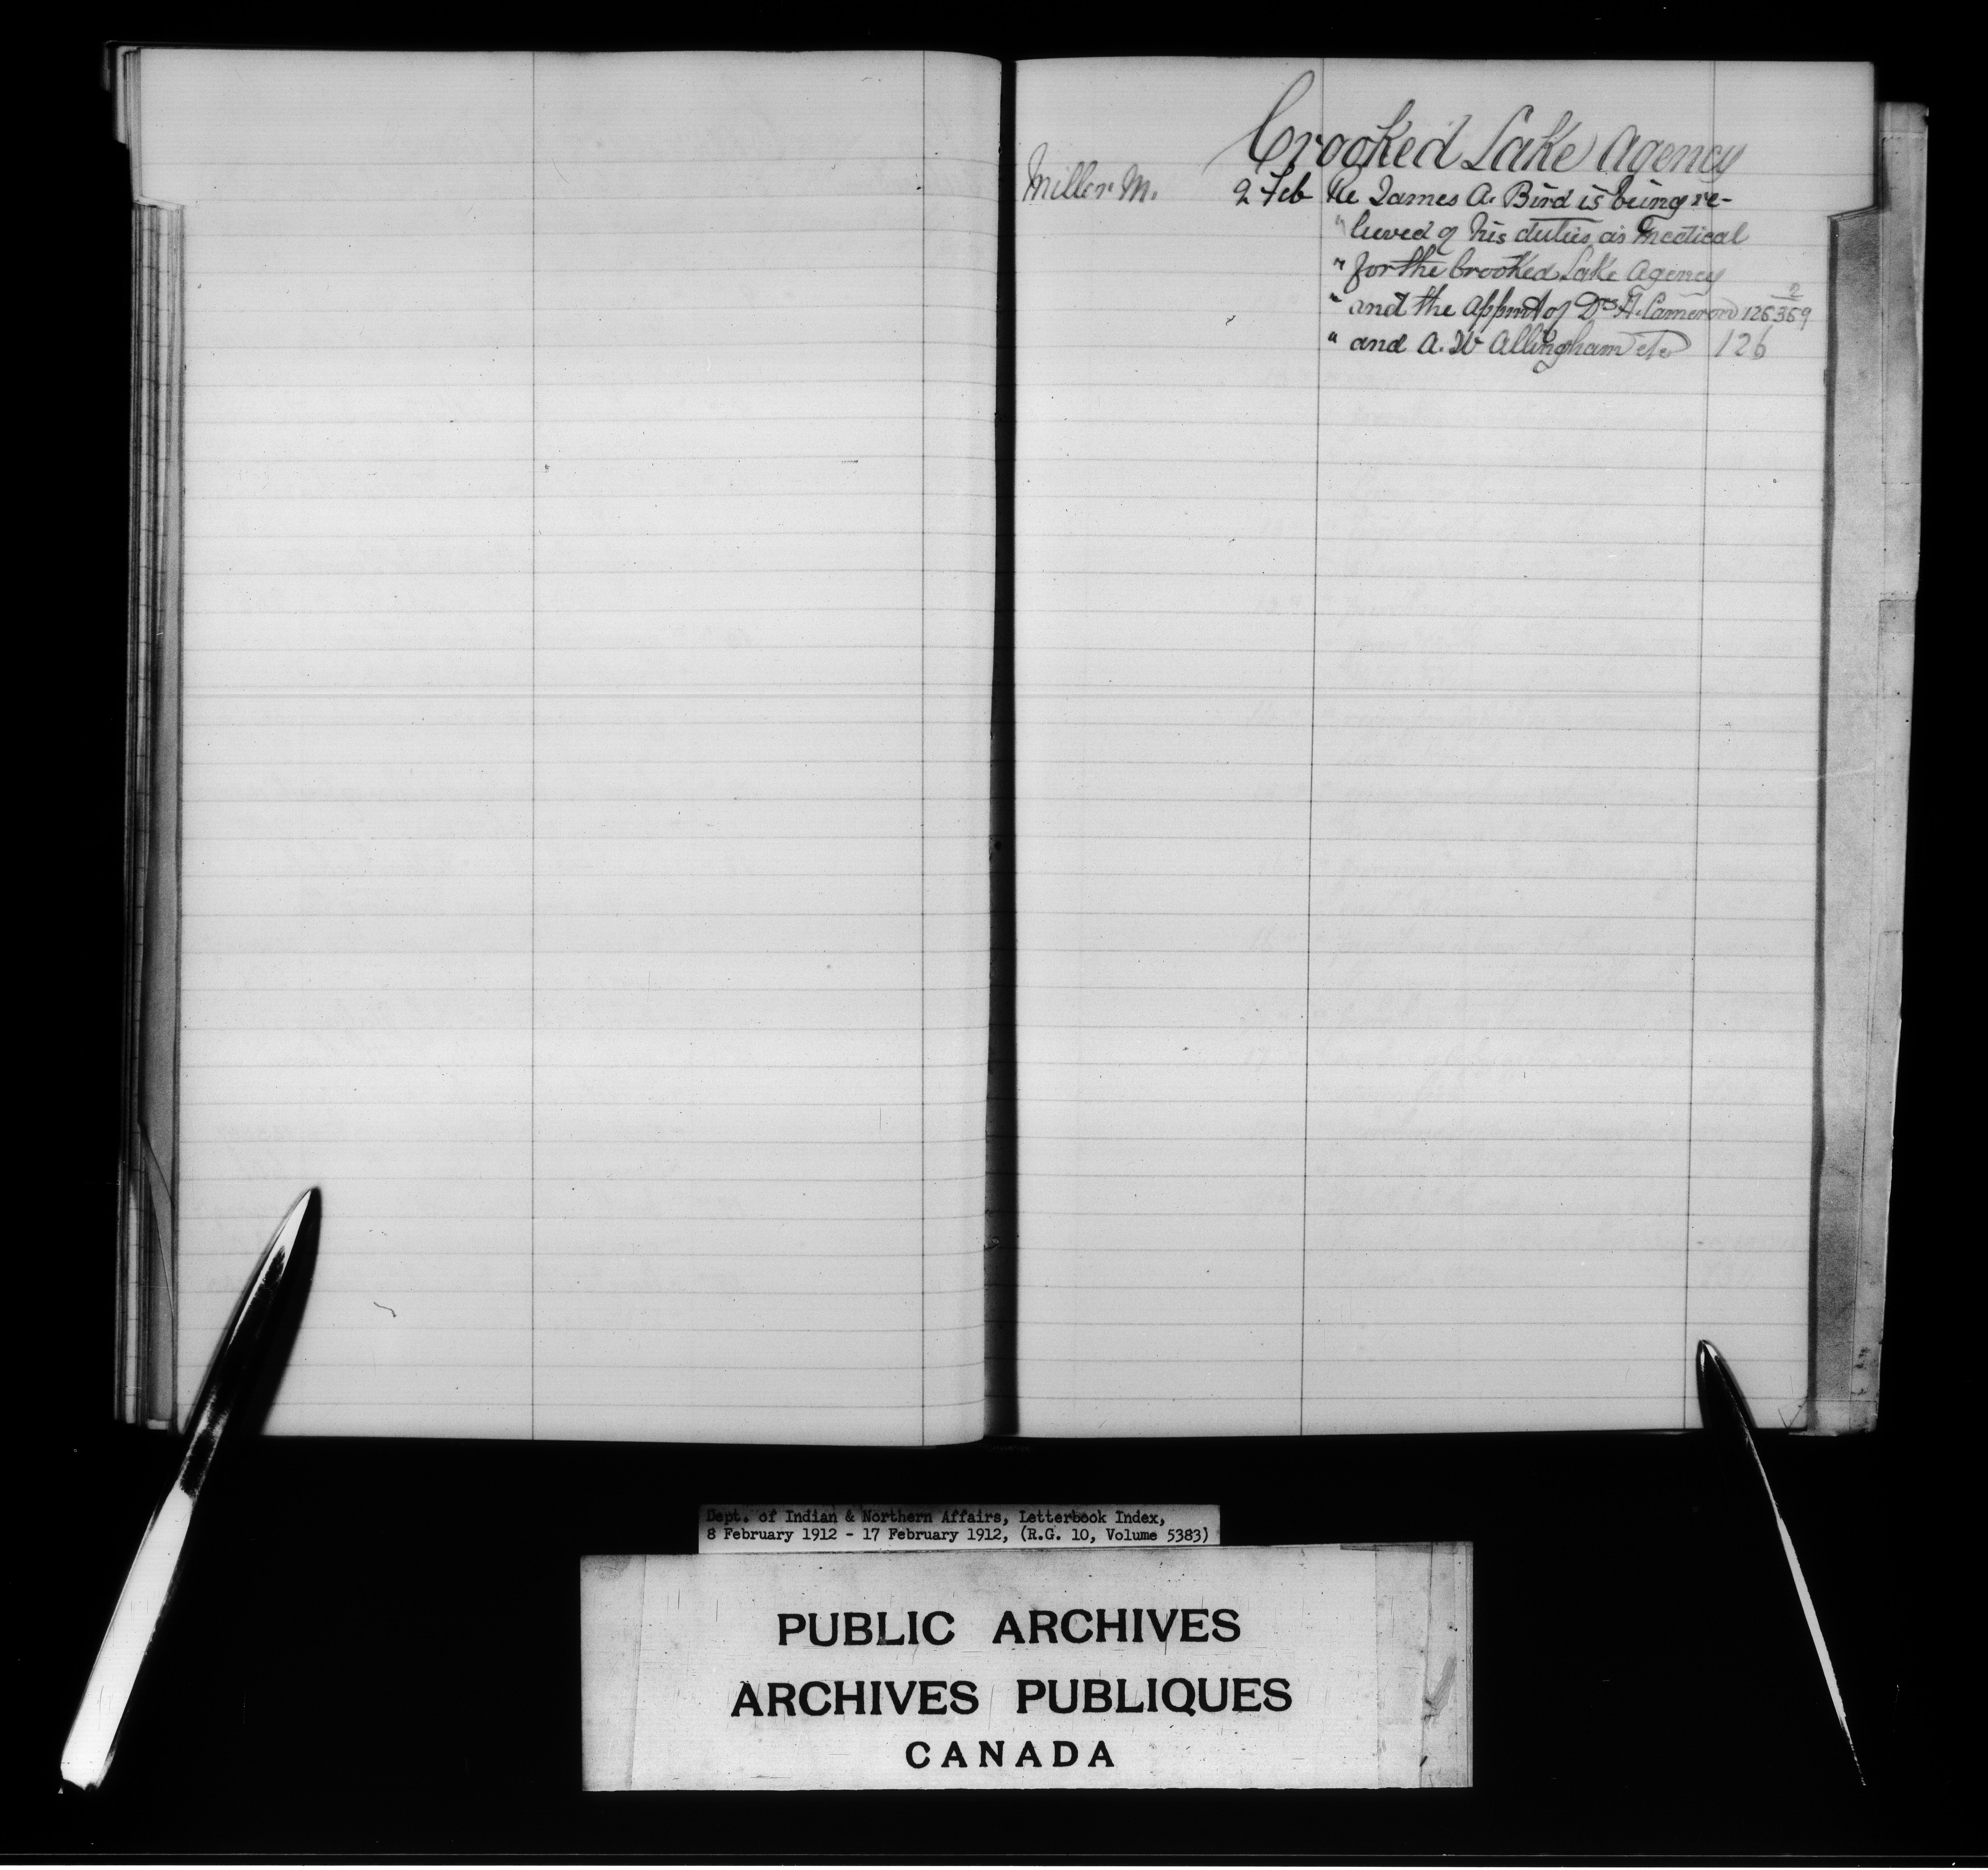 Crooked Lake Agency
Miller M. 9 Feb Re James A. Bird is being re-
" lieved of his duties as medical
" for the Crooked Lake Agency
" and the appmt of Drs A. Cameron 126359 2
" and A. W Allingham etc 126
Dept. of Indian & Northern Affairs, Letterbook Index,
8 February 1912 - 17 February 1912, (R.G. 10, Volume 5383)
PUBLIC ARCHIVES
ARCHIVES PUBLIQUES
CANADA